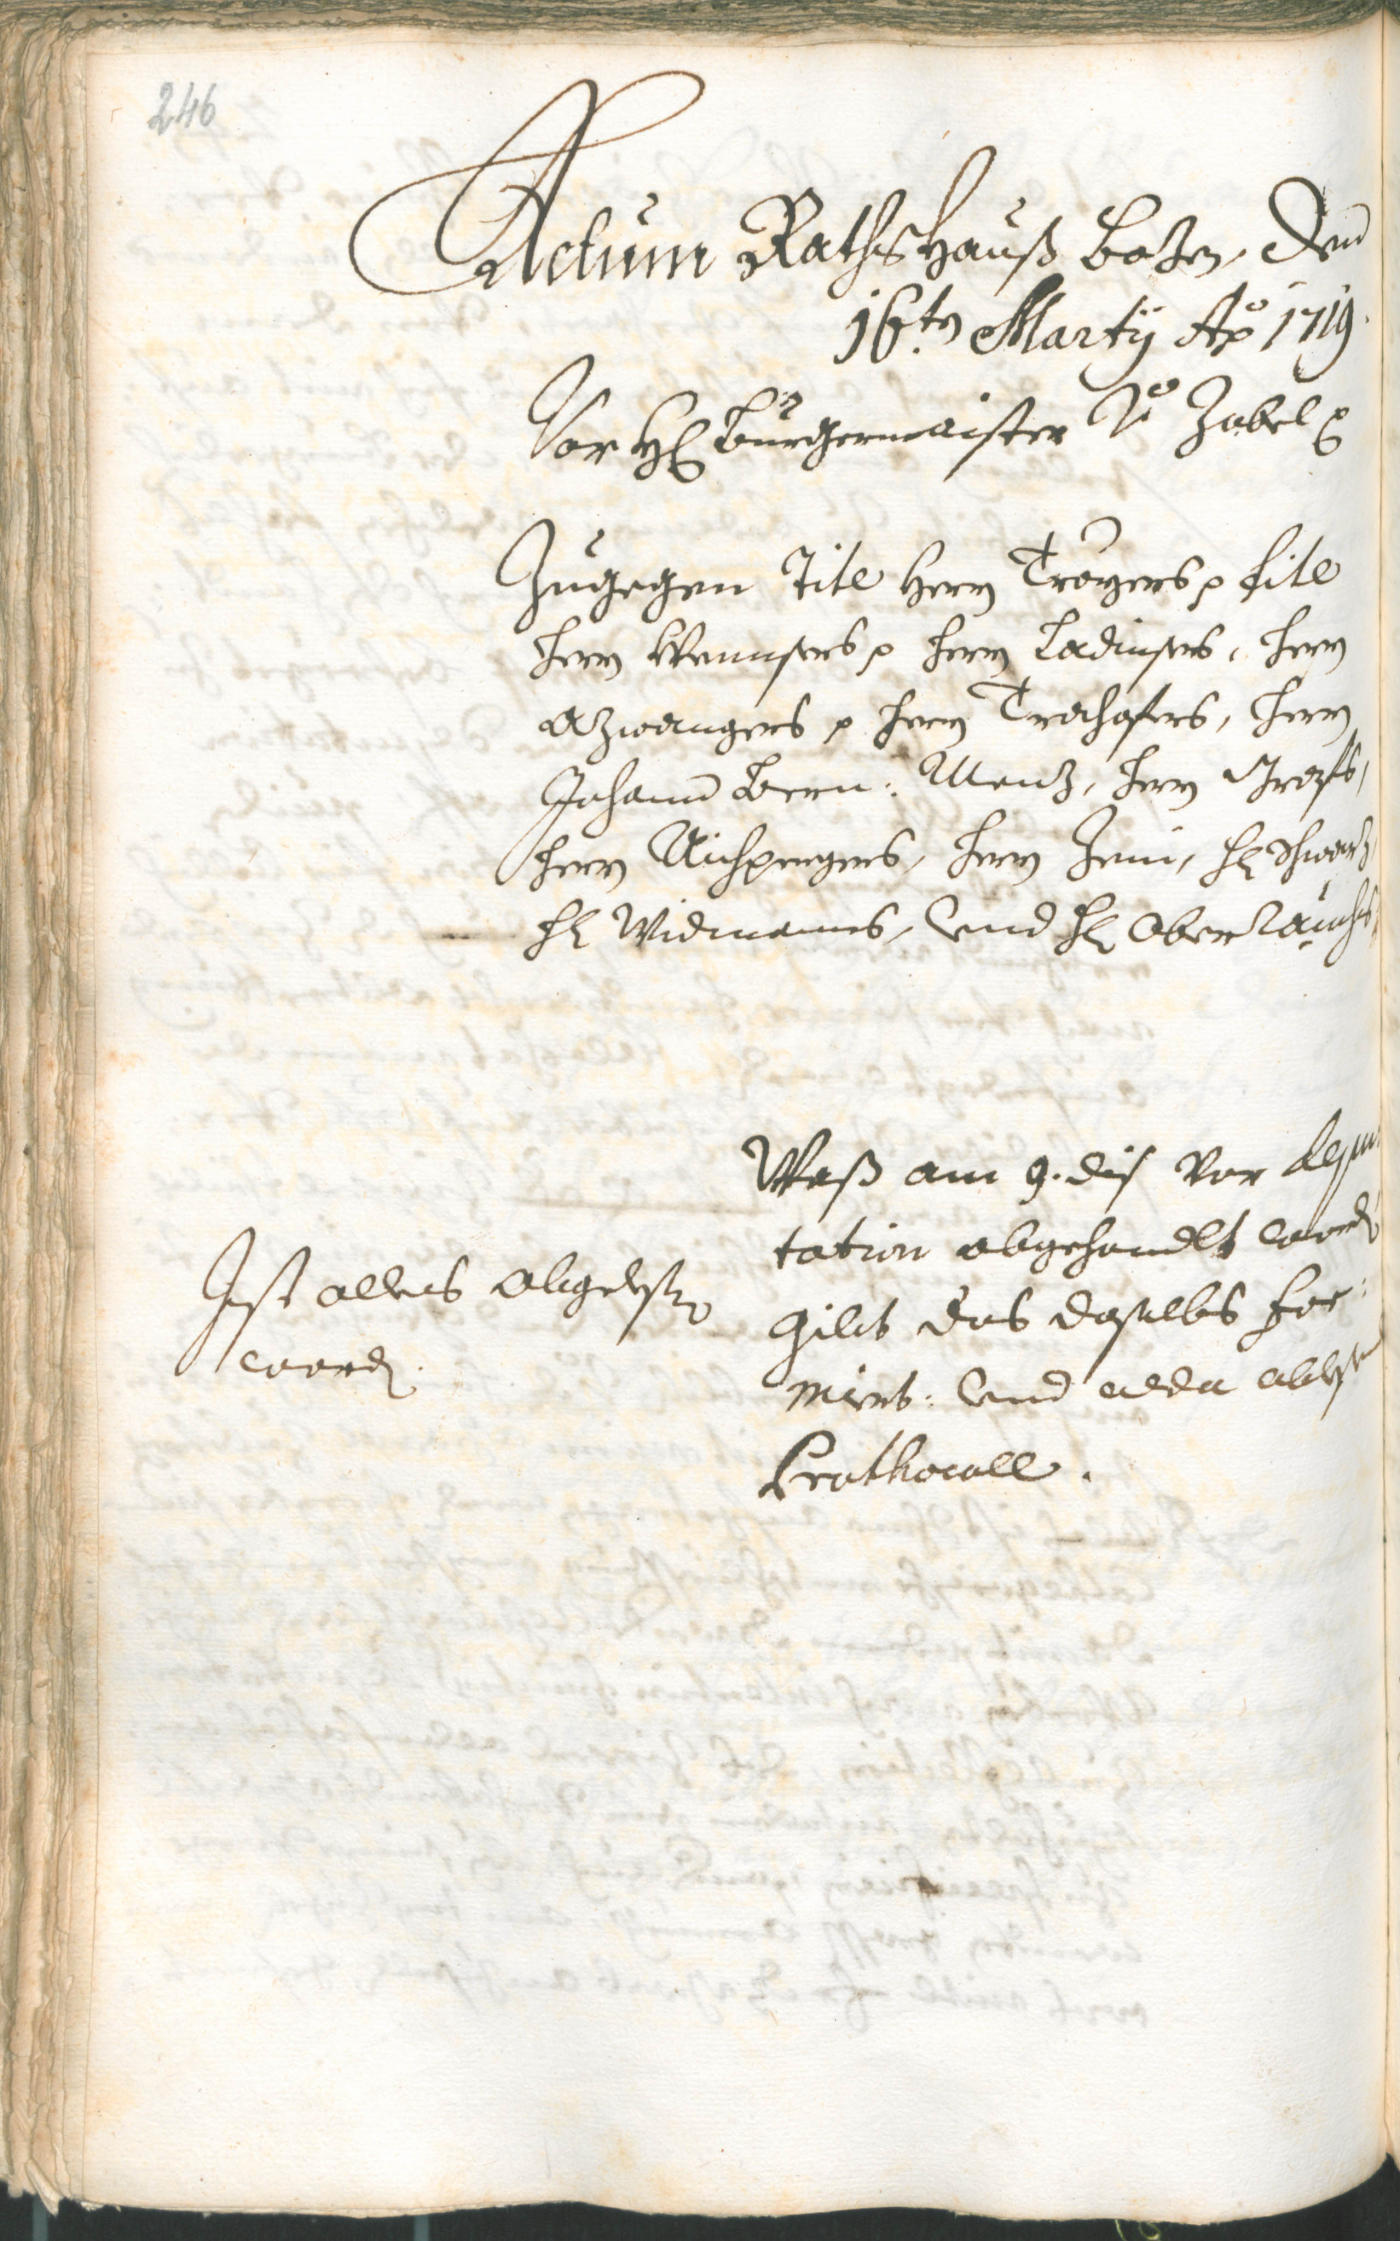 246
Actum Rathshauß Bozen, den
16.ten Martÿ Aõ 1719.
Vor H: Burgermaister Jo Zobel p
Zugegen Titl Herrn Troyers p Titl
Herrn Wennsers p Herrn Ladinsers, Herrn
Azwangers p Herrn Trochofers, Herrn
Johann Bern: Menz, Herrn Grafts,
Herrn Aichpergers, Herrn Jeni, H: Schwarz,
H: Widmanns, und H: Oberrauchs,
Waß am 9. dis vor depu
tation abgehandlt word
gibt das daselbs for:
mirt: und alda ablesen
Prothocoll.
Ist alles abgelesen
worden.